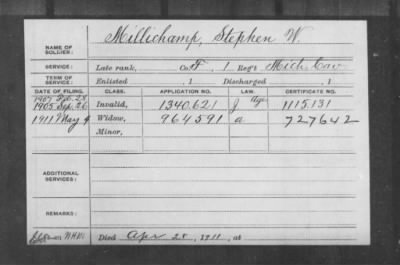 NAME OF SOLDIER: Millichamp, Stephen W.
SERVICE: Late rank, Co. F, 1 Reg't Mich. Cav
TERM OF SERVICE: Enlisted , 1 Discharged , 1
DATE OF FILING. CLASS. APPLICATION NO. LAW. CERTIFICATE NO.
1907 Feb. 28
1905 Sep. 26 Invalid, 1340.621 J Age 1115.131
1911 May 4 Widow, 964591 a 727642
Minor,
ADDITIONAL SERVICES:
REMARKS:
Died Apr 28, 1911, at